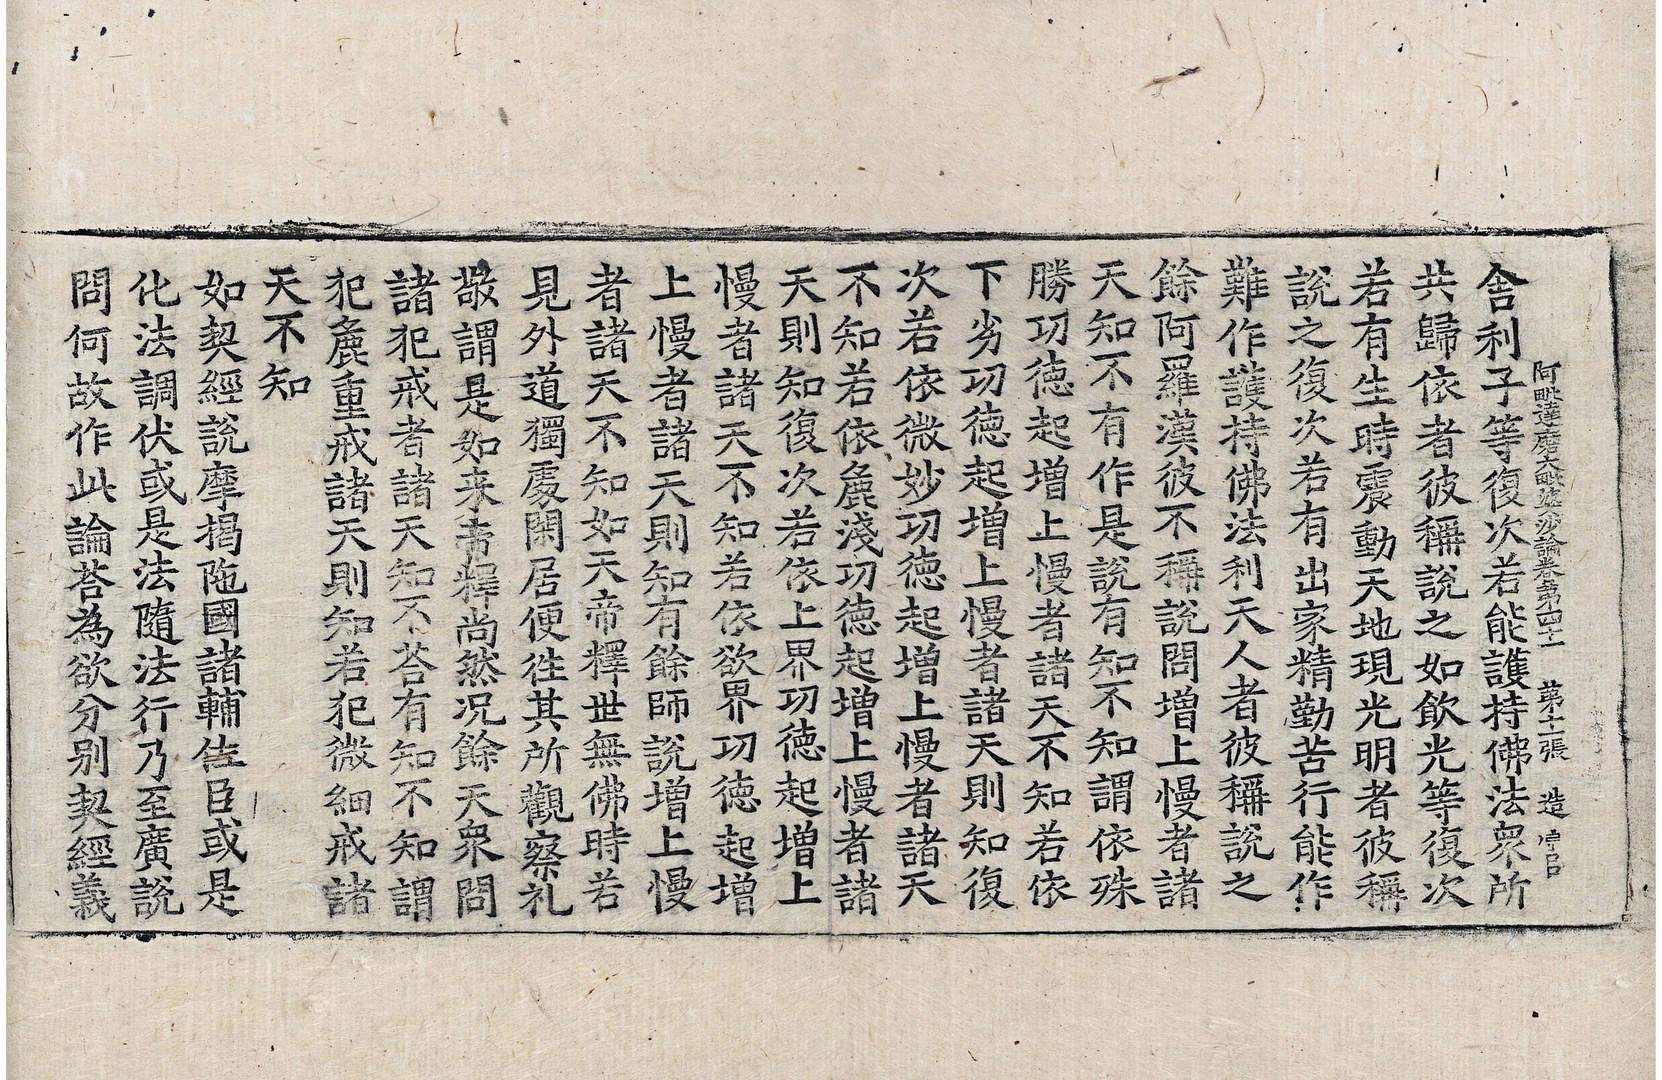 阿毗達磨大毗婆沙論卷第四十一 第十二張 造
舍利子等復次若能護持佛法衆所
共歸依者彼稱說之如飲光等復次
若有生時震動天地現光明者彼稱
說之復次若有出家精勤苦行能作
難作護持佛法利天人者彼稱說之
餘阿羅漢彼不稱說問增上慢者諸
天知不有作是說有知不知謂依殊
勝功德起增上慢者諸天不知若依
下劣功德起增上慢者諸天則知復
次若依微妙功德起增上慢者諸天
不知若依麁淺功德起增上慢者諸
天則知復次若依上界功德起增上
慢者諸天不知若依欲界功德起增
上慢者諸天則知有餘師說增上慢
者諸天不知如天帝釋世無佛時若
見外道獨處閑居便徃其所觀察礼
敬謂是如来帝釋尚然况餘天衆問
諸犯戒者諸天知不荅有知不知謂
犯麁重戒諸天則知若犯微細戒諸
天不知
如契經說摩揭陁國諸輔佐臣或是
化法調伏或是法隨法行乃至廣說
問何故作此論荅為欲分別契經義